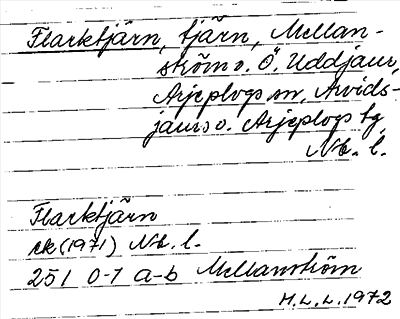 Flarktjärn, tjärn, Mellan-
ström o. Ö. Uddjaur,
Arjeplogs sn, Arvids-
jaurs o. Arjeplogs tg
Nb. l.
Flarktjärn
ek (1971) Nb. l.
25 I 0-1 a-b Mellanström
H.L.L. 1972